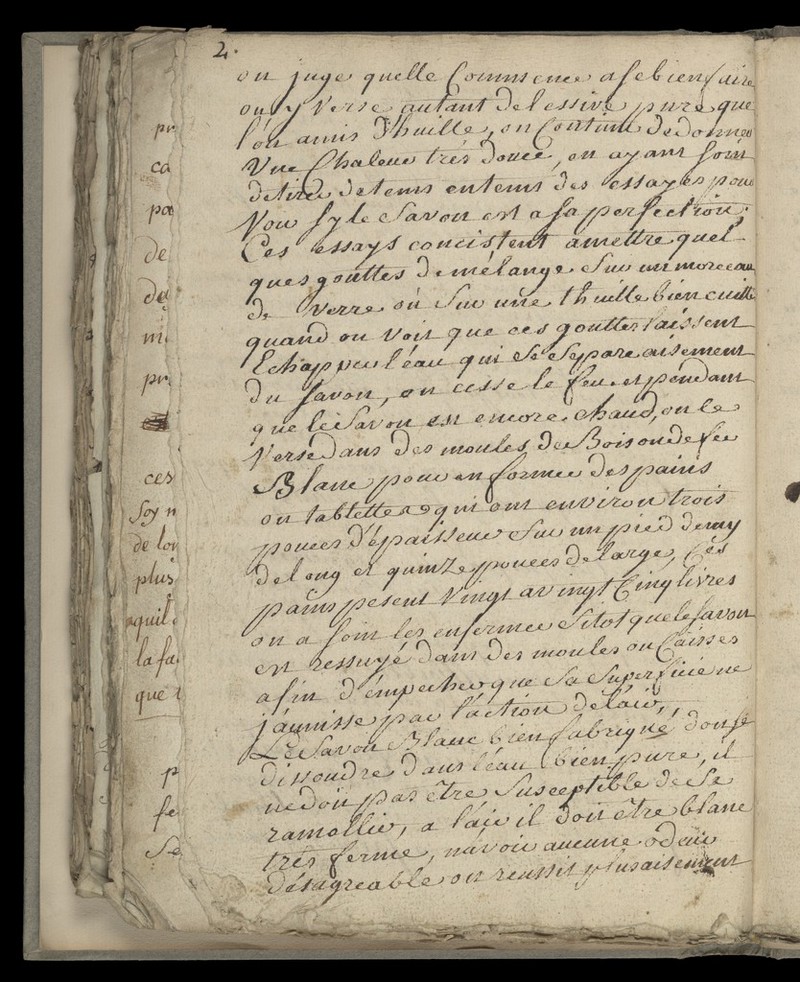 2.
on juge quelle Commence a se bien faire
on y verse autant de lessive pure que
l'on a mis d'huille, on Continue de donner
Une Chaleur trés douce, en ayant soin
de tirer de tems en tems des essayes pour
Voir sy le Savon est a sa perfection;
Ces essays concistent a mettre quel-
ques gouttes de mélange sur un morceau
de verre où sur une thuille bien cuitte
quand on voit que ces gouttes laissent
Echapper l'éau qui se Sépare aisément
du savon, on cesse le feu et pendant
que le Savon est encore chaud, on le
verse dans des moules de Bois ou de fer
Blanc pour en former des pains
ou tablettes qui ont environ trois
pouces d'épaisseur sur un pied demy
de long et quinze pouces de large, Ces
pains pesent vingt a vingt Cinq livres
on a soin les enfermer sitot que le savon
est ressuyé dans des moules ou Caisses
afin d'émpecher que sa Superficie ne
jaunisse par l'action de l'air,
Le Savon Blanc bien fabriqué doit se
dissoudre dans l'éau bien pure, il
ne doit pas être Susceptible de se
ramollir, a l'air il doit être blanc
trés ferme, n'avoir aucune odeur
désagreable on reussit plus aisement
pr
ca
pa
de
du
ni
pr
ces
Soy n
de lon
plus
aquil
la fa
que
p
fe
Se